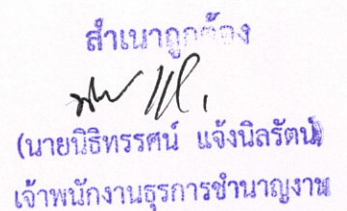 สำเนาถูกต้อง
(นายนิธิทรรศน์ แจ้งนิลรัตน์)
เจ้าพนักงานธุรการชำนาญงาน